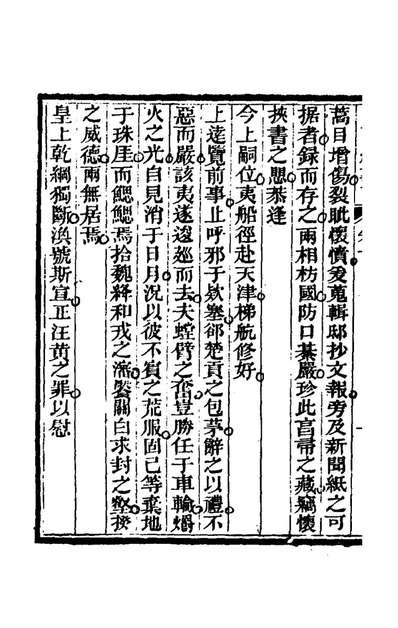 蒿目增傷裂眦懷憤爰蒐輯邸抄文報旁及新聞紙之可
据者錄而存之兩相枋國防口綦嚴珍此享帚之藏竊懷
挾書之思恭逢
今上嗣位夷船徑赴天津梯航修好
上遠覽前事止呼邪于欵塞郤楚貢之包茅辭之以禮不
惡而嚴該夷遂逡巡而去夫螳臂之奮豈勝任于車輪爝
火之光自見消于日月況以彼不賓之荒服固已等棄地
于珠厓而鰓鰓焉拾魏絳和戎之瀋襲關白求封之
之威德兩無居焉
皇上乾綱獨斷渙號斯宣正汪黃之罪以慰